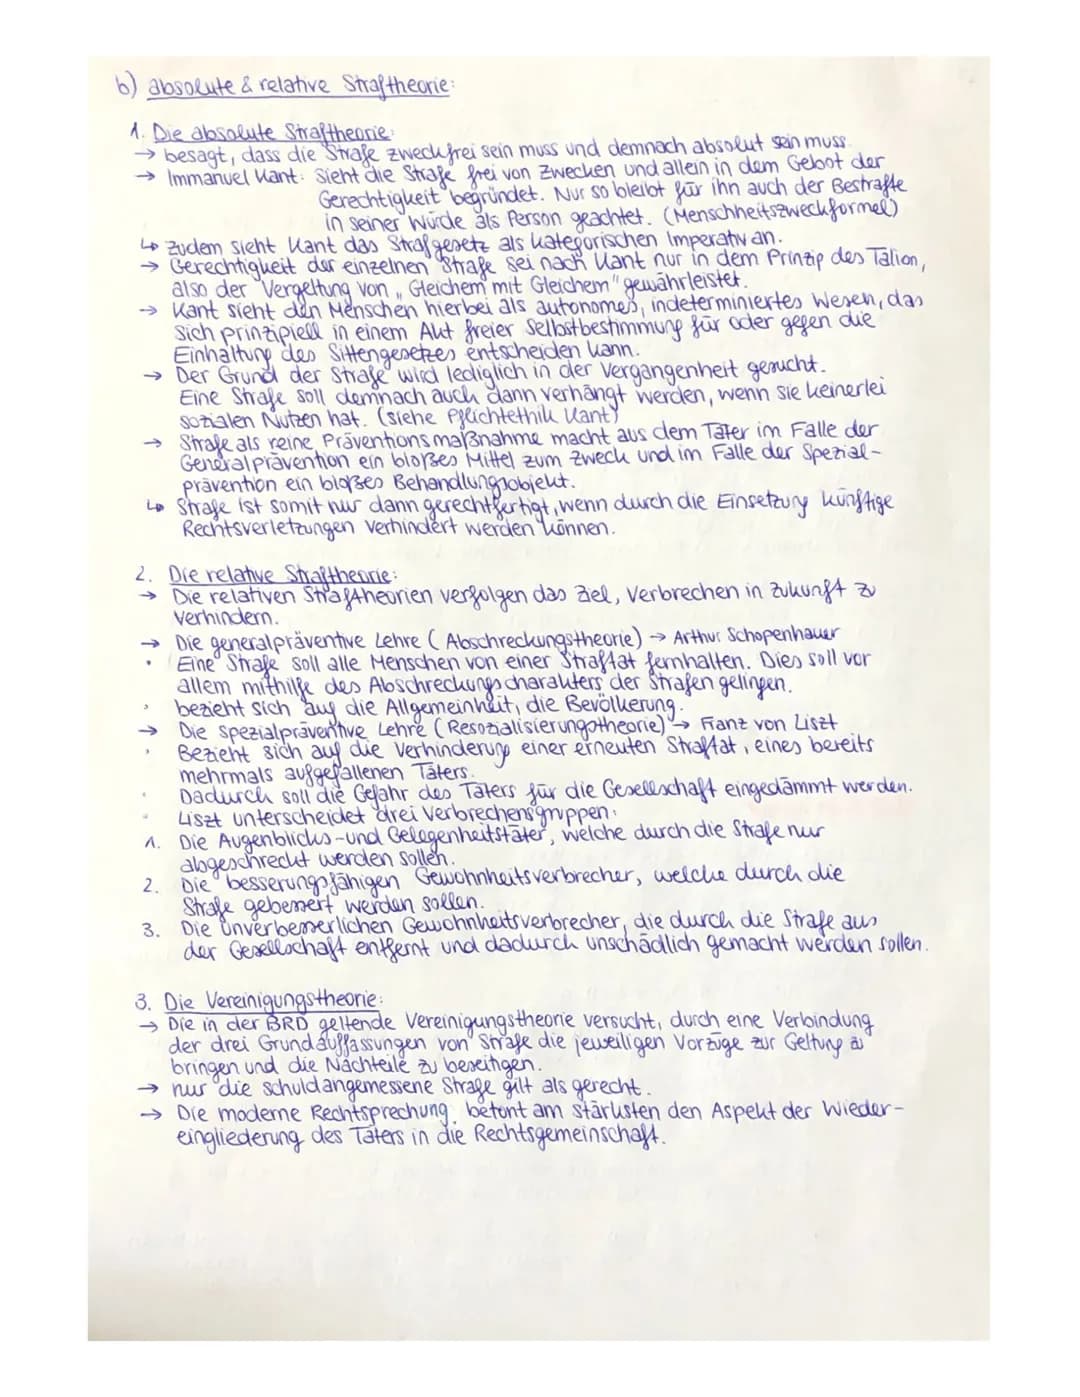 b) absolute & relative Straftheorie:
1. Die absolute Straftheorie:
→ besagt, dass die Strafe zweckfrei sein muss und demnach absolut sein muss.
→ Immanuel Kant: Sieht die Strafe frei von Zwecken und allein in dem Gebot der
Gerechtigkeit begründet. Nur so bleibt für ihn auch der Bestrafte
in seiner Würde als Person geachtet. (Menschheitszweckformel)
↳ Zudem sieht Kant das Strafgesetz als kategorischen Imperativ an.
→ Gerechtigkeit der einzelnen Strafe sei nach Kant nur in dem Prinzip des Talion,
also der Vergeltung von „Gleichem mit Gleichem" gewährleistet.
→ Kant sieht den Menschen hierbei als autonomes, indeterminiertes Wesen, das
sich prinzipiell in einem Akt freier Selbstbestimmung für oder gegen die
Einhaltung des Sittengesetzes entscheiden kann.
→ Der Grund der Strafe wird lediglich in der Vergangenheit gesucht.
Eine Strafe soll demnach auch dann verhängt werden, wenn sie keinerlei
sozialen Nutzen hat. (siehe Pflichtethik Kant)
→ Strafe als reine Präventionsmaßnahme macht aus dem Täter im Falle der
Generalprävention ein bloßes Mittel zum Zweck und im Falle der Spezial-
prävention ein bloßes Behandlungsobjekt.
↳ Strafe ist somit nur dann gerechtfertigt, wenn durch die Einsetzung künftige
Rechtsverletzungen verhindert werden können.
2. Die relative Straftheorie:
→ Die relativen Straftheorien verfolgen das Ziel, Verbrechen in Zukunft zu
verhindern.
→ Die generalpräventive Lehre (Abschreckungstheorie) → Arthur Schopenhauer
• Eine Strafe soll alle Menschen von einer Straftat fernhalten. Dies soll vor
allem mithilfe des Abschreckungscharakters der Strafen gelingen.
• bezieht sich auf die Allgemeinheit, die Bevölkerung.
→ Die spezialpräventive Lehre (Resozialisierungstheorie) → Franz von Liszt
• Bezieht sich auf die Verhinderung einer erneuten Straftat, eines bereits
mehrmals aufgefallenen Täters.
• Dadurch soll die Gefahr des Täters für die Gesellschaft eingedämmt werden.
• Liszt unterscheidet drei Verbrechensgruppen:
1. Die Augenblicks- und Gelegenheitstäter, welche durch die Strafe nur
abgeschreckt werden sollen.
2. Die besserungsfähigen Gewohnheitsverbrecher, welche durch die
Strafe gebessert werden sollen.
3. Die unverbesserlichen Gewohnheitsverbrecher, die durch die Strafe aus
der Gesellschaft entfernt und dadurch unschädlich gemacht werden sollen.
3. Die Vereinigungstheorie:
→ Die in der BRD geltende Vereinigungstheorie versucht, durch eine Verbindung
der drei Grundauffassungen von Strafe die jeweiligen Vorzüge zur Geltung zu
bringen und die Nachteile zu beseitigen.
→ nur die schuldangemessene Strafe gilt als gerecht.
→ Die moderne Rechtsprechung betont am stärksten den Aspekt der Wieder-
eingliederung des Täters in die Rechtsgemeinschaft.